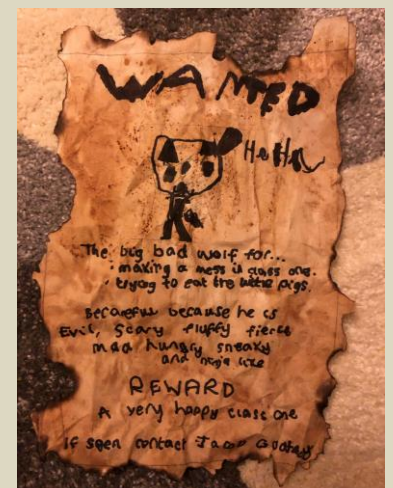 WANTED
Ha Ha
The big bad wolf for...
· making a mess in class one.
· trying to eat the little pigs.
Becareful because he is
Evil, Scary fluffy fierce
mad hungry sneaky
and ninja like
REWARD
A very happy class one
if seen contact